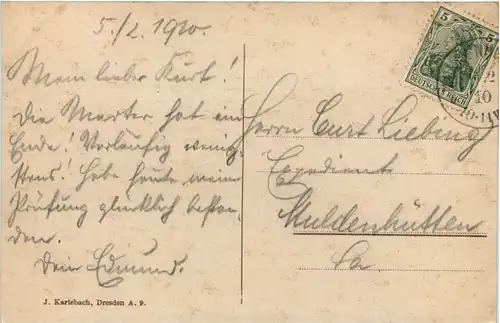 5./2. 1910.
Mein lieber Kurt!
Die Marter hat ein
Ende! Vorläufig wenig-
stens! Habe heute meine
Prüfung glücklich bestan-
den.
Dein Edmund.
J. Karlebach, Dresden A. 9.
5 5
DEUTSCHES REICH
2
10
10-11V
Herrn Curt Liebing
Expedient
Muldenhütten
Sa